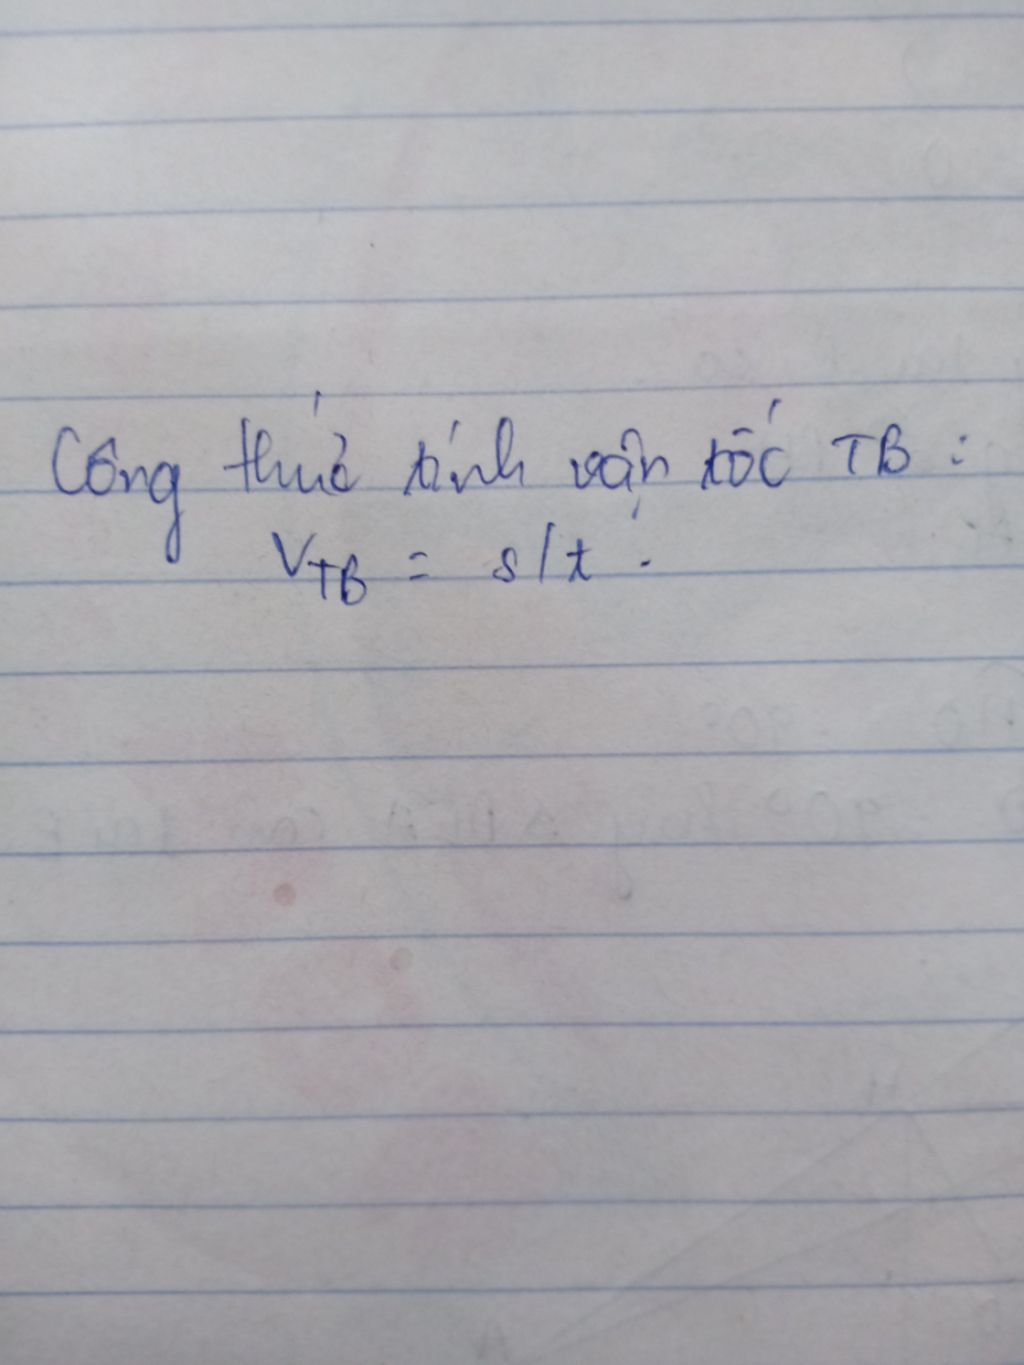 Công thức tính vận tốc TB :
VTB = s/t .